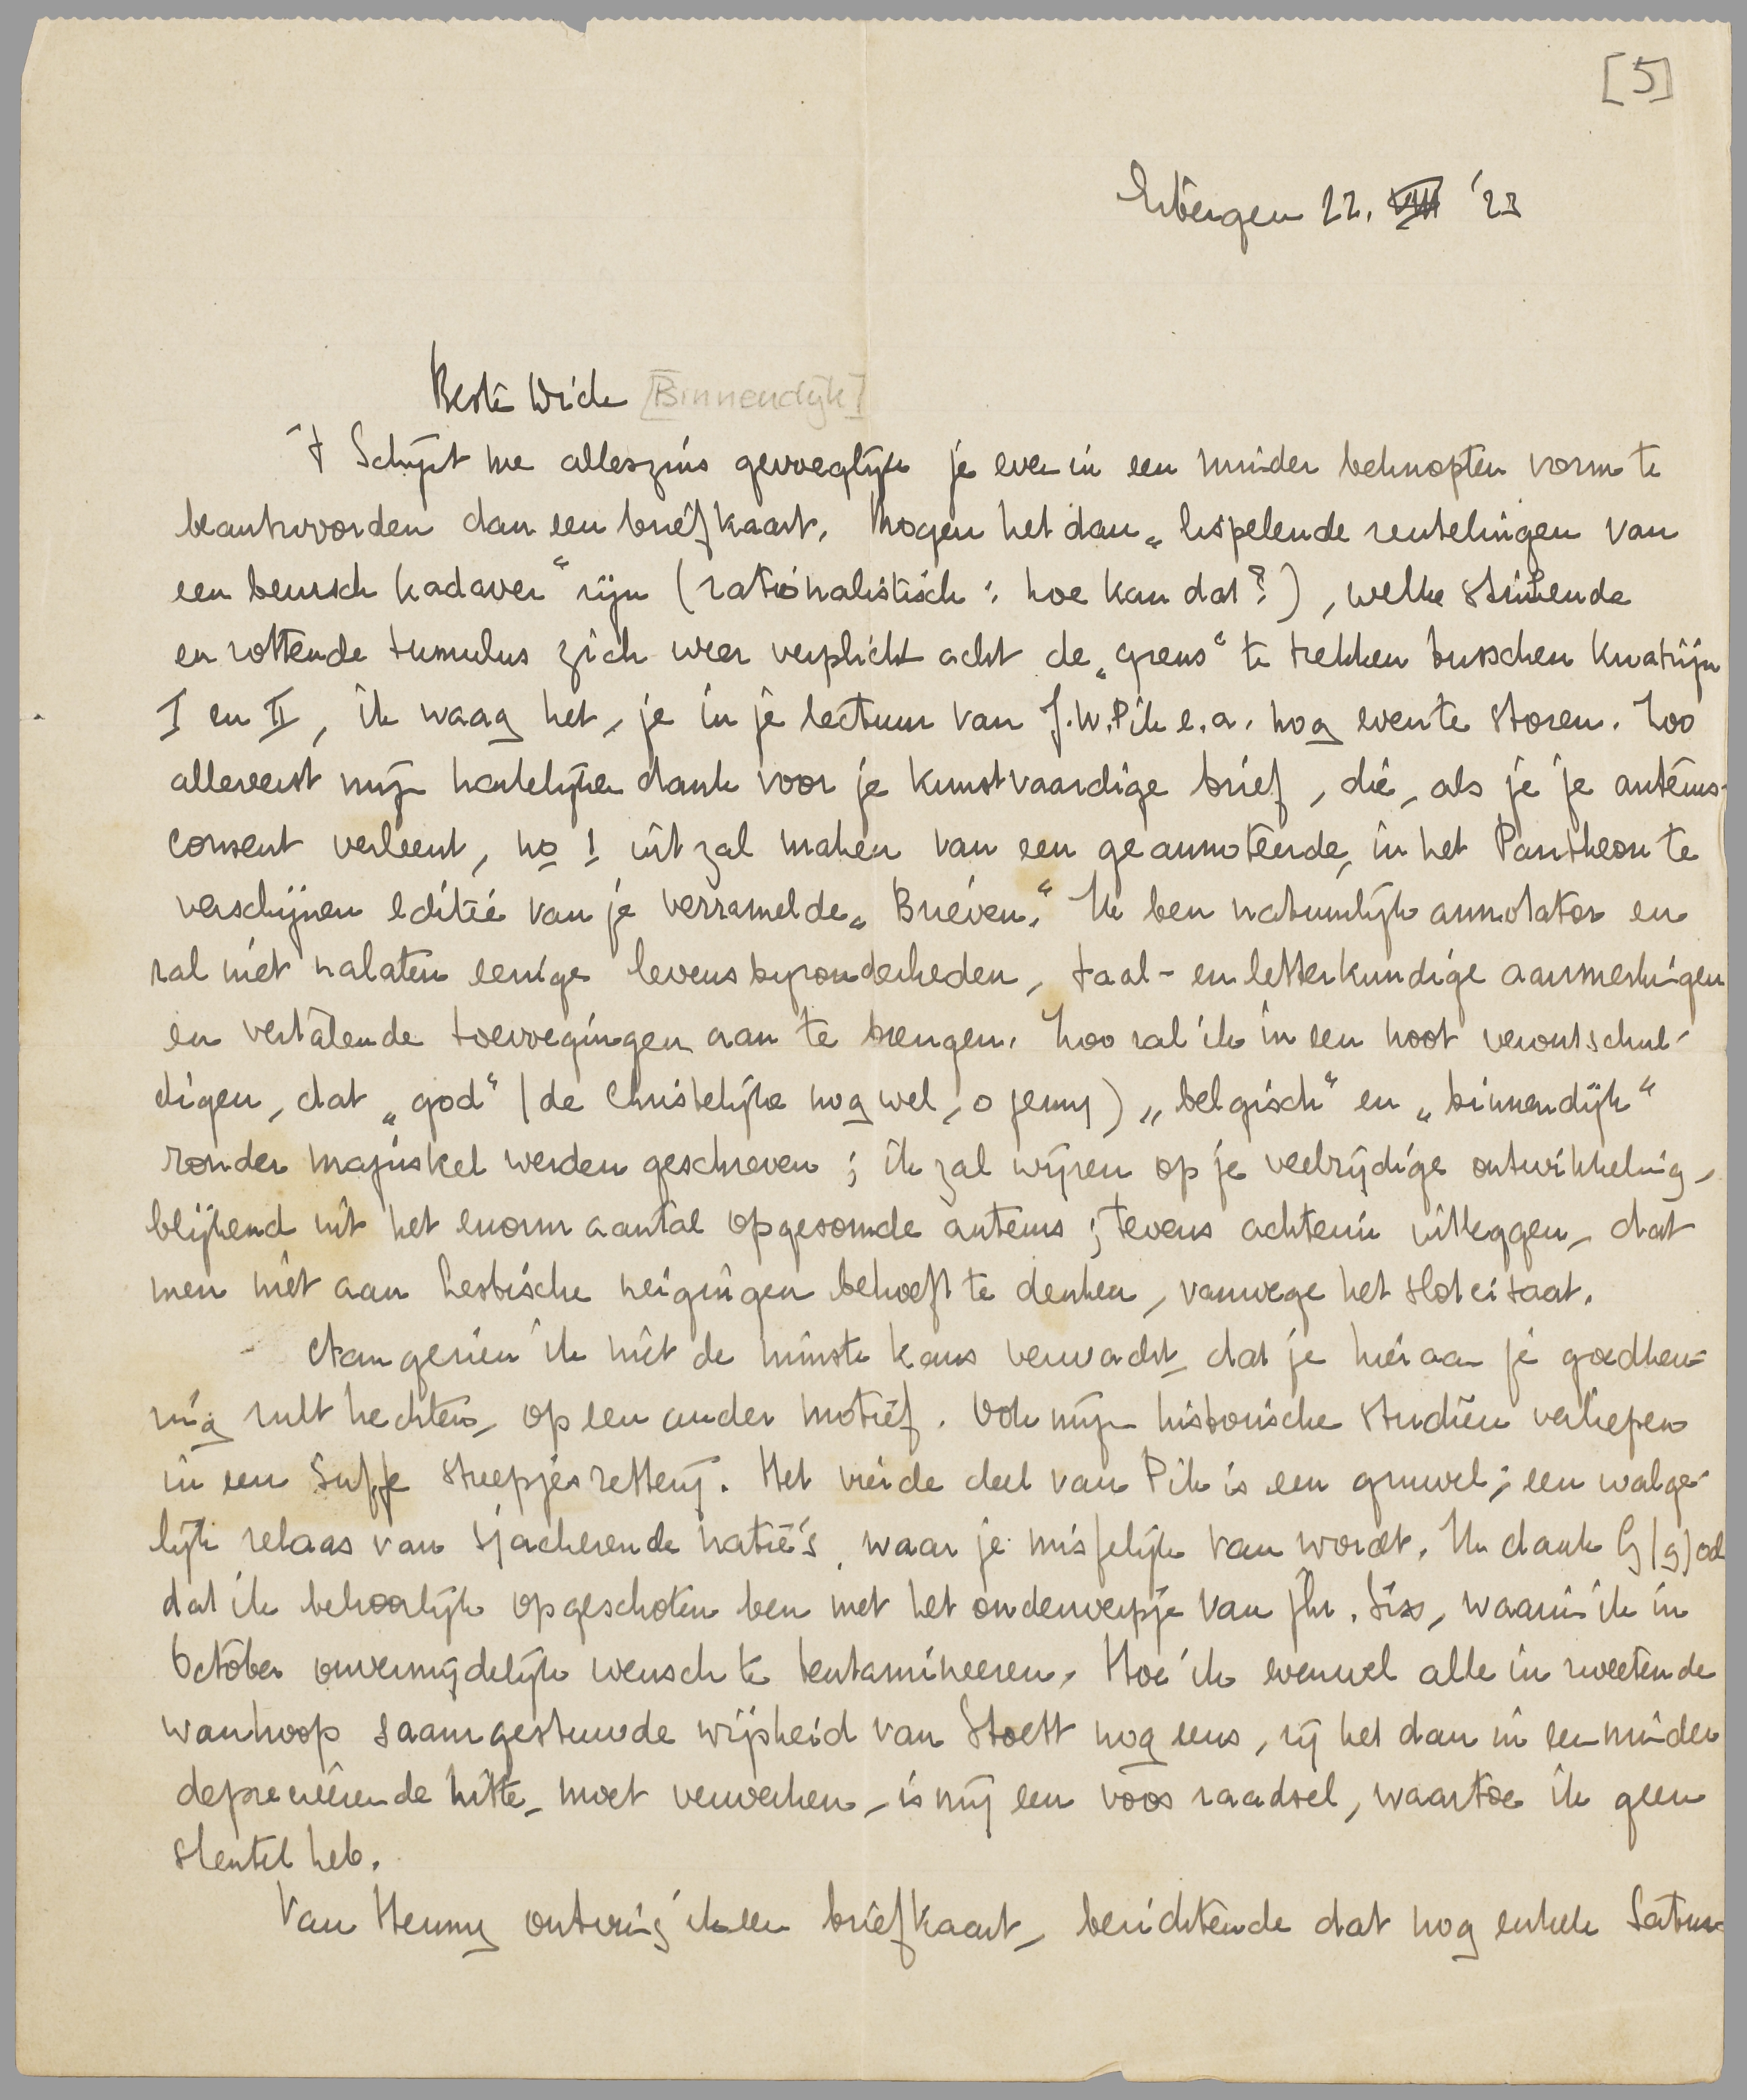 [5]
Eibergen 22. VIII '23
Beste Dick [Binnendijk]
't Schijnt me alleszins gevoeglijk je even in een minder beknopten vorm te
beantwoorden dan een briefkaart. Mogen het dan „lispelende reutelingen van
een beursch kadaver" zijn (rationalistisch: hoe kan dat?), welke stinkende
en rottende tumulus zich weer verplicht acht de „grens" te trekken tusschen kwatrijn
I en II, ik waag het, je in je lectuur van J.W. Pik e.a. nog even te storen. Zoo
allereerst mijn hartelijken dank voor je kunstvaardige brief, die, als je je auteurs-
consent verleent, no 1 uit zal maken van een geannoteerde, in het Pantheon te
verschijnen editie van je verzamelde „Brieven." Ik ben natuurlijk annotator en
zal niet nalaten eenige levensbyzonderheden, taal- en letterkundige aanmerkingen
en vertalende toevoegingen aan te brengen. Zoo zal ik in een noot verontschul-
digen, dat „god" (de Christelijke nog wel, o Jenny) „belgisch" en „binnendijk"
zonder majuskel werden geschreven; ik zal wijzen op je veelzijdige ontwikkeling,
blijkend uit het enorm aantal opgesomde auteurs; tevens achterin uitleggen, dat
men niet aan Lesbische neigingen behoeft te denken, vanwege het slotcitaat.
Aangezien ik niet de minste kans verwacht, dat je hieraan je goedkeu-
ring zult hechten, op een ander motief. Ook mijn historische studiën verliepen
in een suffe streepjeszetterij. Het vierde deel van Pik is een gruwel; een walge-
lijk relaas van sjacherende natie's, waar je misselijk van wordt. Ik dank G(g)od
dat ik behoorlijk opgeschoten ben met het onderwerpje van jhr. Six, waarin ik in
October onvermijdelijk wensch te tentamineeren. Hoe ik evenwel alle in zweetende
wanhoop saamgestuwde wijsheid van Stoett nog eens, zij het dan in een minder
deprecieerende hitte, moet verwerken, is mij een voos raadsel, waartoe ik geen
sleutel heb.
Van Henny ontving ik een briefkaart, berichtende dat nog enkele Satur-